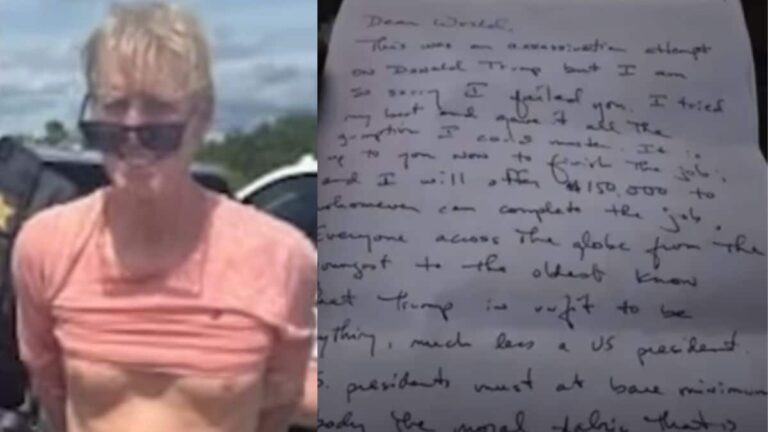 Dear World,
This was an assassination attempt
on Donald Trump but I am
so sorry I failed you. I tried
my best and gave it all the
gumption I could muster. It is
up to you now to finish the job;
and I will offer $150,000 to
whomever can complete the job.
Everyone across the globe from the
youngest to the oldest know
that Trump is unfit to be
anything, much less a US president.
presidents must at bare minimum
the moral fabric that is